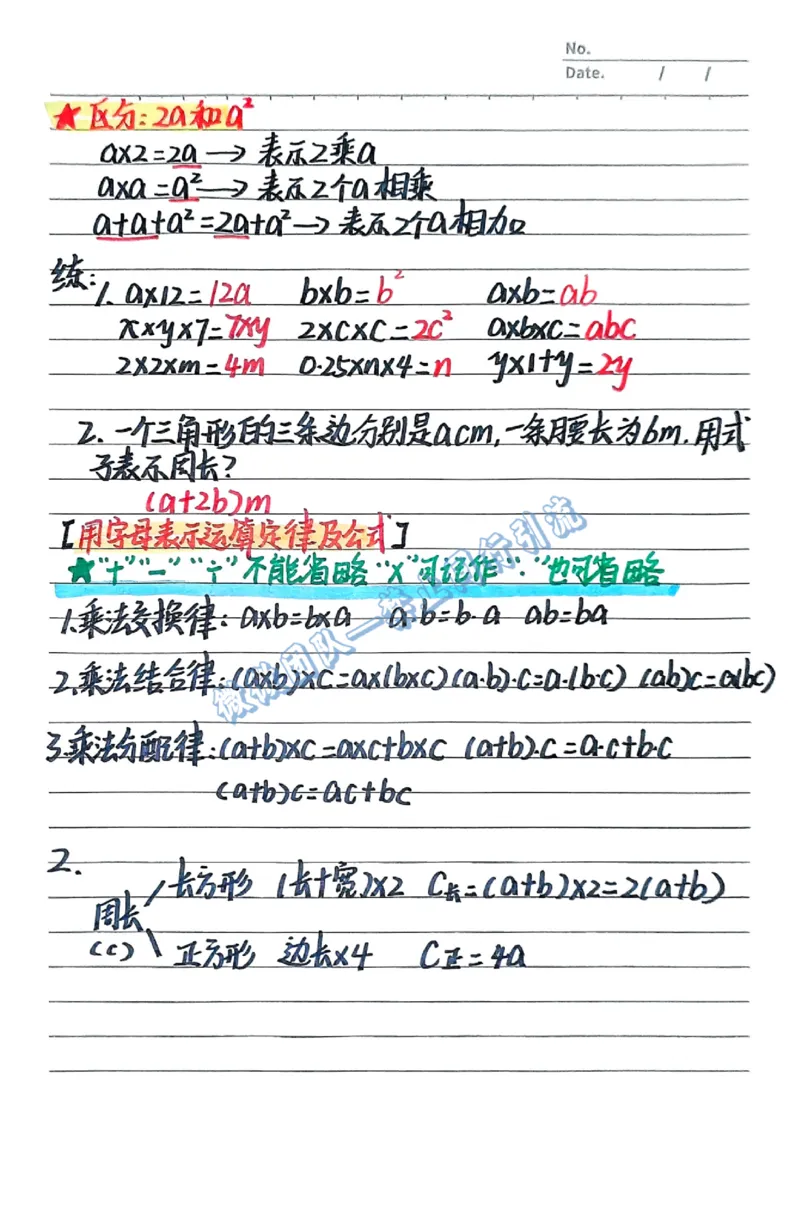 No.
Date. / /
★区分:2a和a²
a×2=2a→表示2乘a
a×a=a²→表示2个a相乘
a+a+a²=2a+a²→表示2个a相加
练:1. a×12=12a b×b=b² a×b=ab
x×y×7=7xy 2×c×c=2c² a×b×c=abc
2×2×m=4m 0.25×n×4=n y×1+y=2y
2.一个三角形的三条边分别是acm,一条腰长为bm.用式
子表示周长?
(a+2b)m
[用字母表示运算定律及公式]
★"+""—""÷"不能省略"×"可记作"·"也可省略
1.乘法交换律:a×b=b×a a·b=b·a ab=ba
2.乘法结合律:(a×b)×c=a×(b×c) (a·b)·c=a·(b·c) (ab)c=a(bc)
3.乘法分配律:(a+b)×c=a×c+b×c (a+b)·c=a·c+b·c
(a+b)c=ac+bc
2.
长方形 (长+宽)×2 C长=(a+b)×2=2(a+b)
周长
(c) 正方形 边长×4 C正=4a